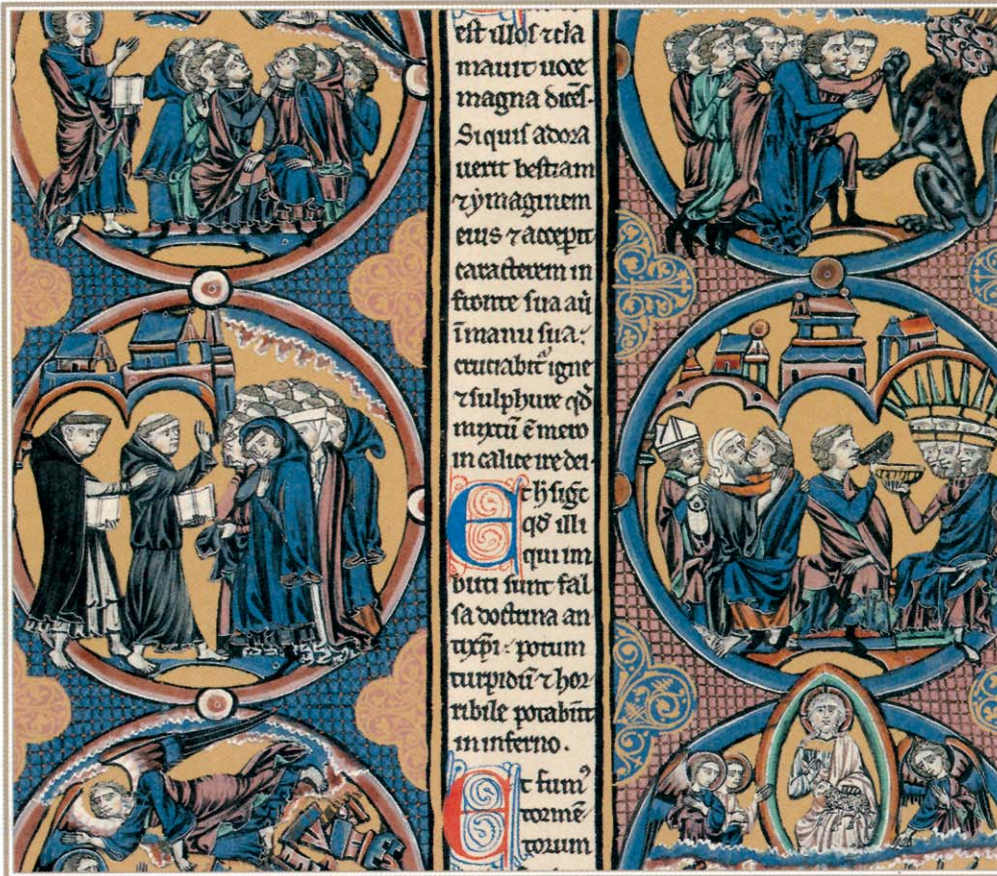 est illos ⁊ cla
mauit uoce
magna dicēs.
Si quis adora
uerit bestiam
⁊ ymaginem
eius ⁊ accepit
caracterem in
fronte sua aū
ī manu sua:
cruciabitᵃ igne
⁊ sulphure qđ
mixtū ē mero
in calice ire dei.
Et h̄ sigͨ
qđ illi
qui im
buti sunt fal
sa doctrina an
tixp̄i: potum
turpidū ⁊ hor
ribile potabūt
in inferno.
Et fumꝰ
tormē
torum